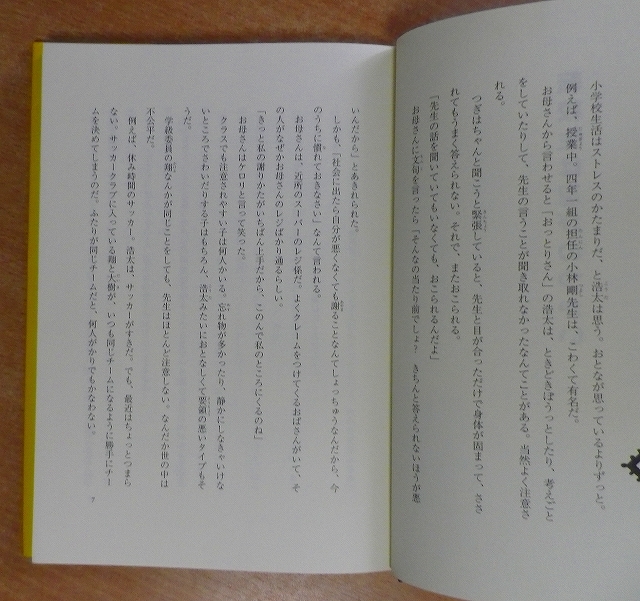 小学校生活はストレスのかたまりだ、と浩太は思う。おとなが思っているよりずっと。
例えば、授業中。四年一組の担任の小林剛先生は、こわくて有名だ。
お母さんから言わせると「おっとりさん」の浩太は、ときどきぼうっとしたり、考えごと
をしていたりして、先生の言うことが聞き取れなかったなんてことがある。当然よく注意さ
れる。
つぎはちゃんと聞こうと緊張していると、先生と目が合っただけで身体が固まって、ささ
れてもうまく答えられない。それで、またおこられる。
「先生の話を聞いていてもいなくても、おこられるんだよ」
お母さんに文句を言ったら「そんなの当たり前でしょ？　きちんと答えられないほうが悪
いんだから」とあきれられた。
しかも、「社会に出たら自分が悪くなくても謝ることなんてしょっちゅうなんだから、今
のうちに慣れておきなさい」なんて言われる。
お母さんは、近所のスーパーのレジ係だ。よくクレームをつけてくるおばさんがいて、そ
の人がなぜかお母さんのレジばかり通るらしい。
「きっと私の謝りかたがいちばん上手だから、このんで私のところにくるのね」
お母さんはケロリと言って笑った。
クラスでも注意されやすい子は何人かいる。忘れ物が多かったり、静かにしなきゃいけな
いところでさわいだりする子はもちろん、浩太みたいにおとなしくて要領の悪いタイプもそ
うだ。
学級委員の翔なんかが同じことをしても、先生はほとんど注意しない。なんだか世の中は
不公平だ。
例えば、休み時間のサッカー。浩太は、サッカーがすきだ。でも、最近はちょっとつまら
ない。サッカークラブに入っている翔と樹が、いつも同じチームになるように勝手にチー
ムを決めてしまうのだ。ふたりが同じチームだと、何人がかりでもかなわない。
7